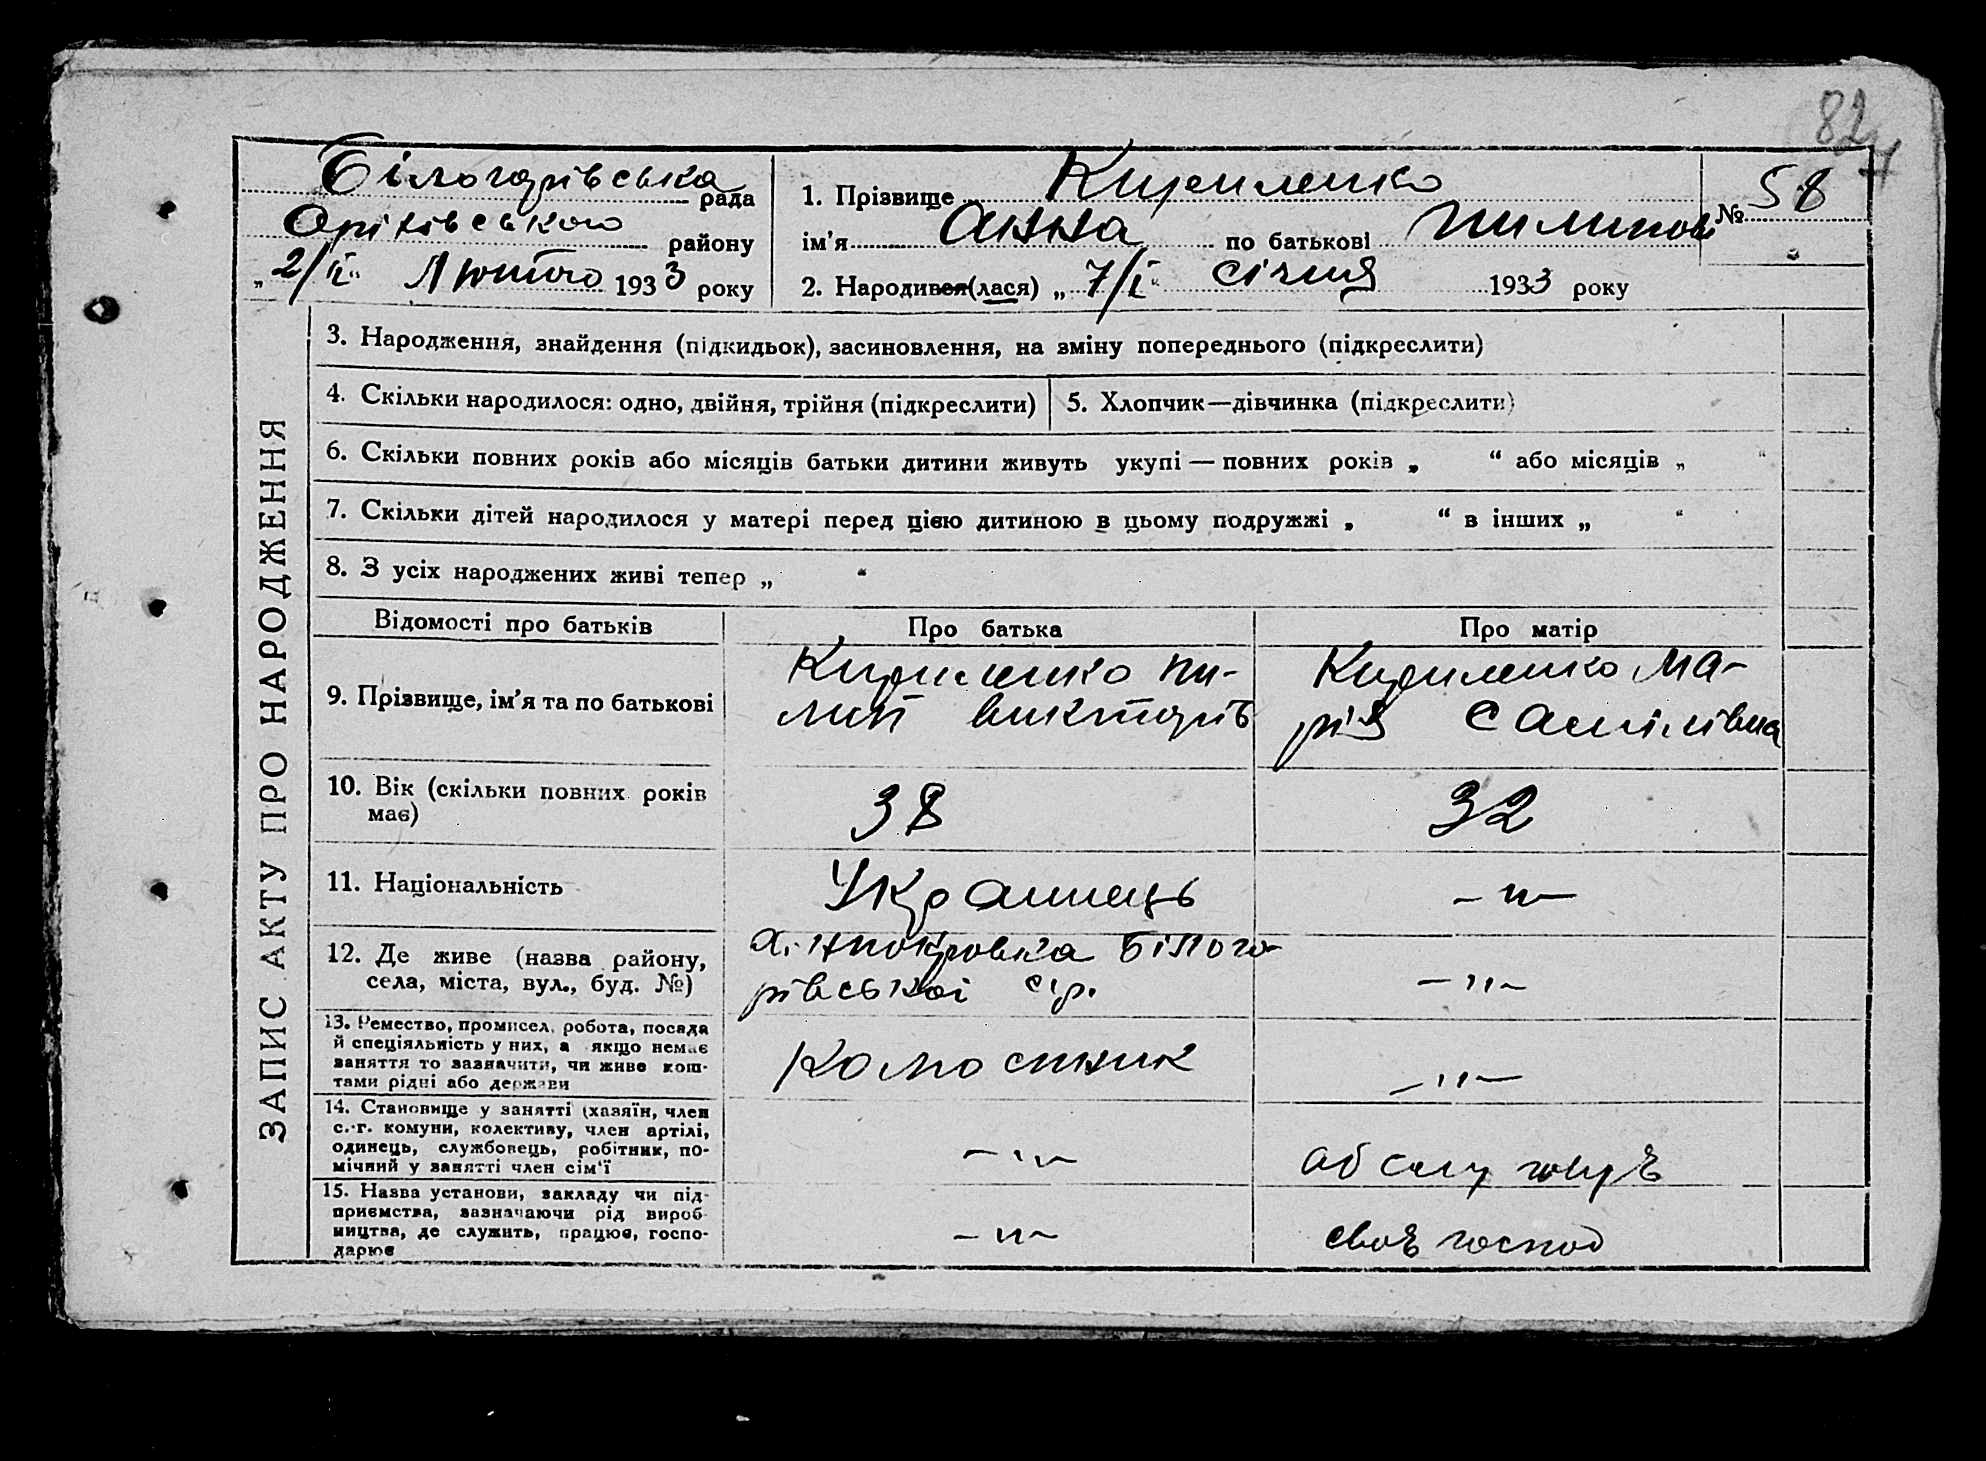 82
Білогорівська рада
Оріхівського району
„2/ІІ“ Лютого 1933 року
1. Прізвище Кириленко
ім’я Анна по батькові Пилипов
№ 58
2. Народився (лася) „7/І“ січня 1933 року
ЗАПИС АКТУ ПРО НАРОДЖЕННЯ
3. Народження, знайдення (підкидьок), засиновлення, на зміну попереднього (підкреслити)
4. Скільки народилося: одно, двійня, трійня (підкреслити)
5. Хлопчик—дівчинка (підкреслити)
6. Скільки повних років або місяців батьки дитини живуть укупі — повних років „ “ або місяців „ “
7. Скільки дітей народилося у матері перед цією дитиною в цьому подружжі „ “ в інших „ “
8. З усіх народжених живі тепер „ “
Відомості про батьків
Про батька
Про матір
9. Прізвище, ім’я та по батькові
Кириленко Пи-
лип Викторів
Кириленко Ма-
рія Самілівна
10. Вік (скільки повних років
має)
38
32
11. Національність
Українець
–"–
12. Де живе (назва району,
села, міста, вул., буд. №)
х. Нпокровка Білого-
рівської с.р.
–"–
13. Ремество, промисел, робота, посада
й спеціяльність у них, а якщо немає
заняття то зазначити, чи живе кош-
тами рідні або держави
Колосник
–"–
14. Становище у занятті (хазяїн, член
с.-г. комуни, колективу, член артілі,
одинець, службовець, робітник, по-
мічний у занятті член сім’ї
–"–
15. Назва установи, закладу чи під-
приємства, зазначаючи рід вироб-
ництва, де служить, працює, госпо-
дарює
–"–
своє господ